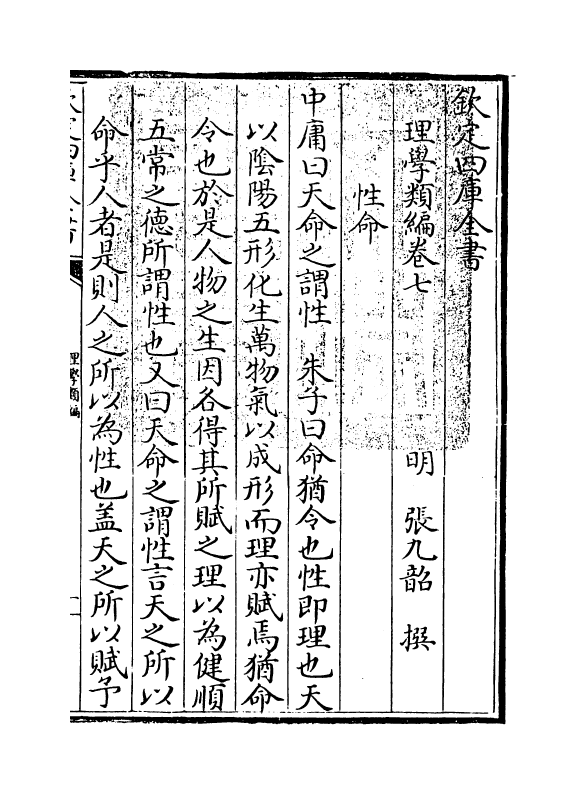 欽定四庫全書
理學類編卷七　　　明　張九韶　撰
性命
中庸曰天命之謂性　朱子曰命猶令也性即理也天
以陰陽五形化生萬物氣以成形而理亦賦焉猶命
令也於是人物之生因各得其所賦之理以為健順
五常之德所謂性也又曰天命之謂性言天之所以
命乎人者是則人之所以為性也盖天之所以賦予
理學類編